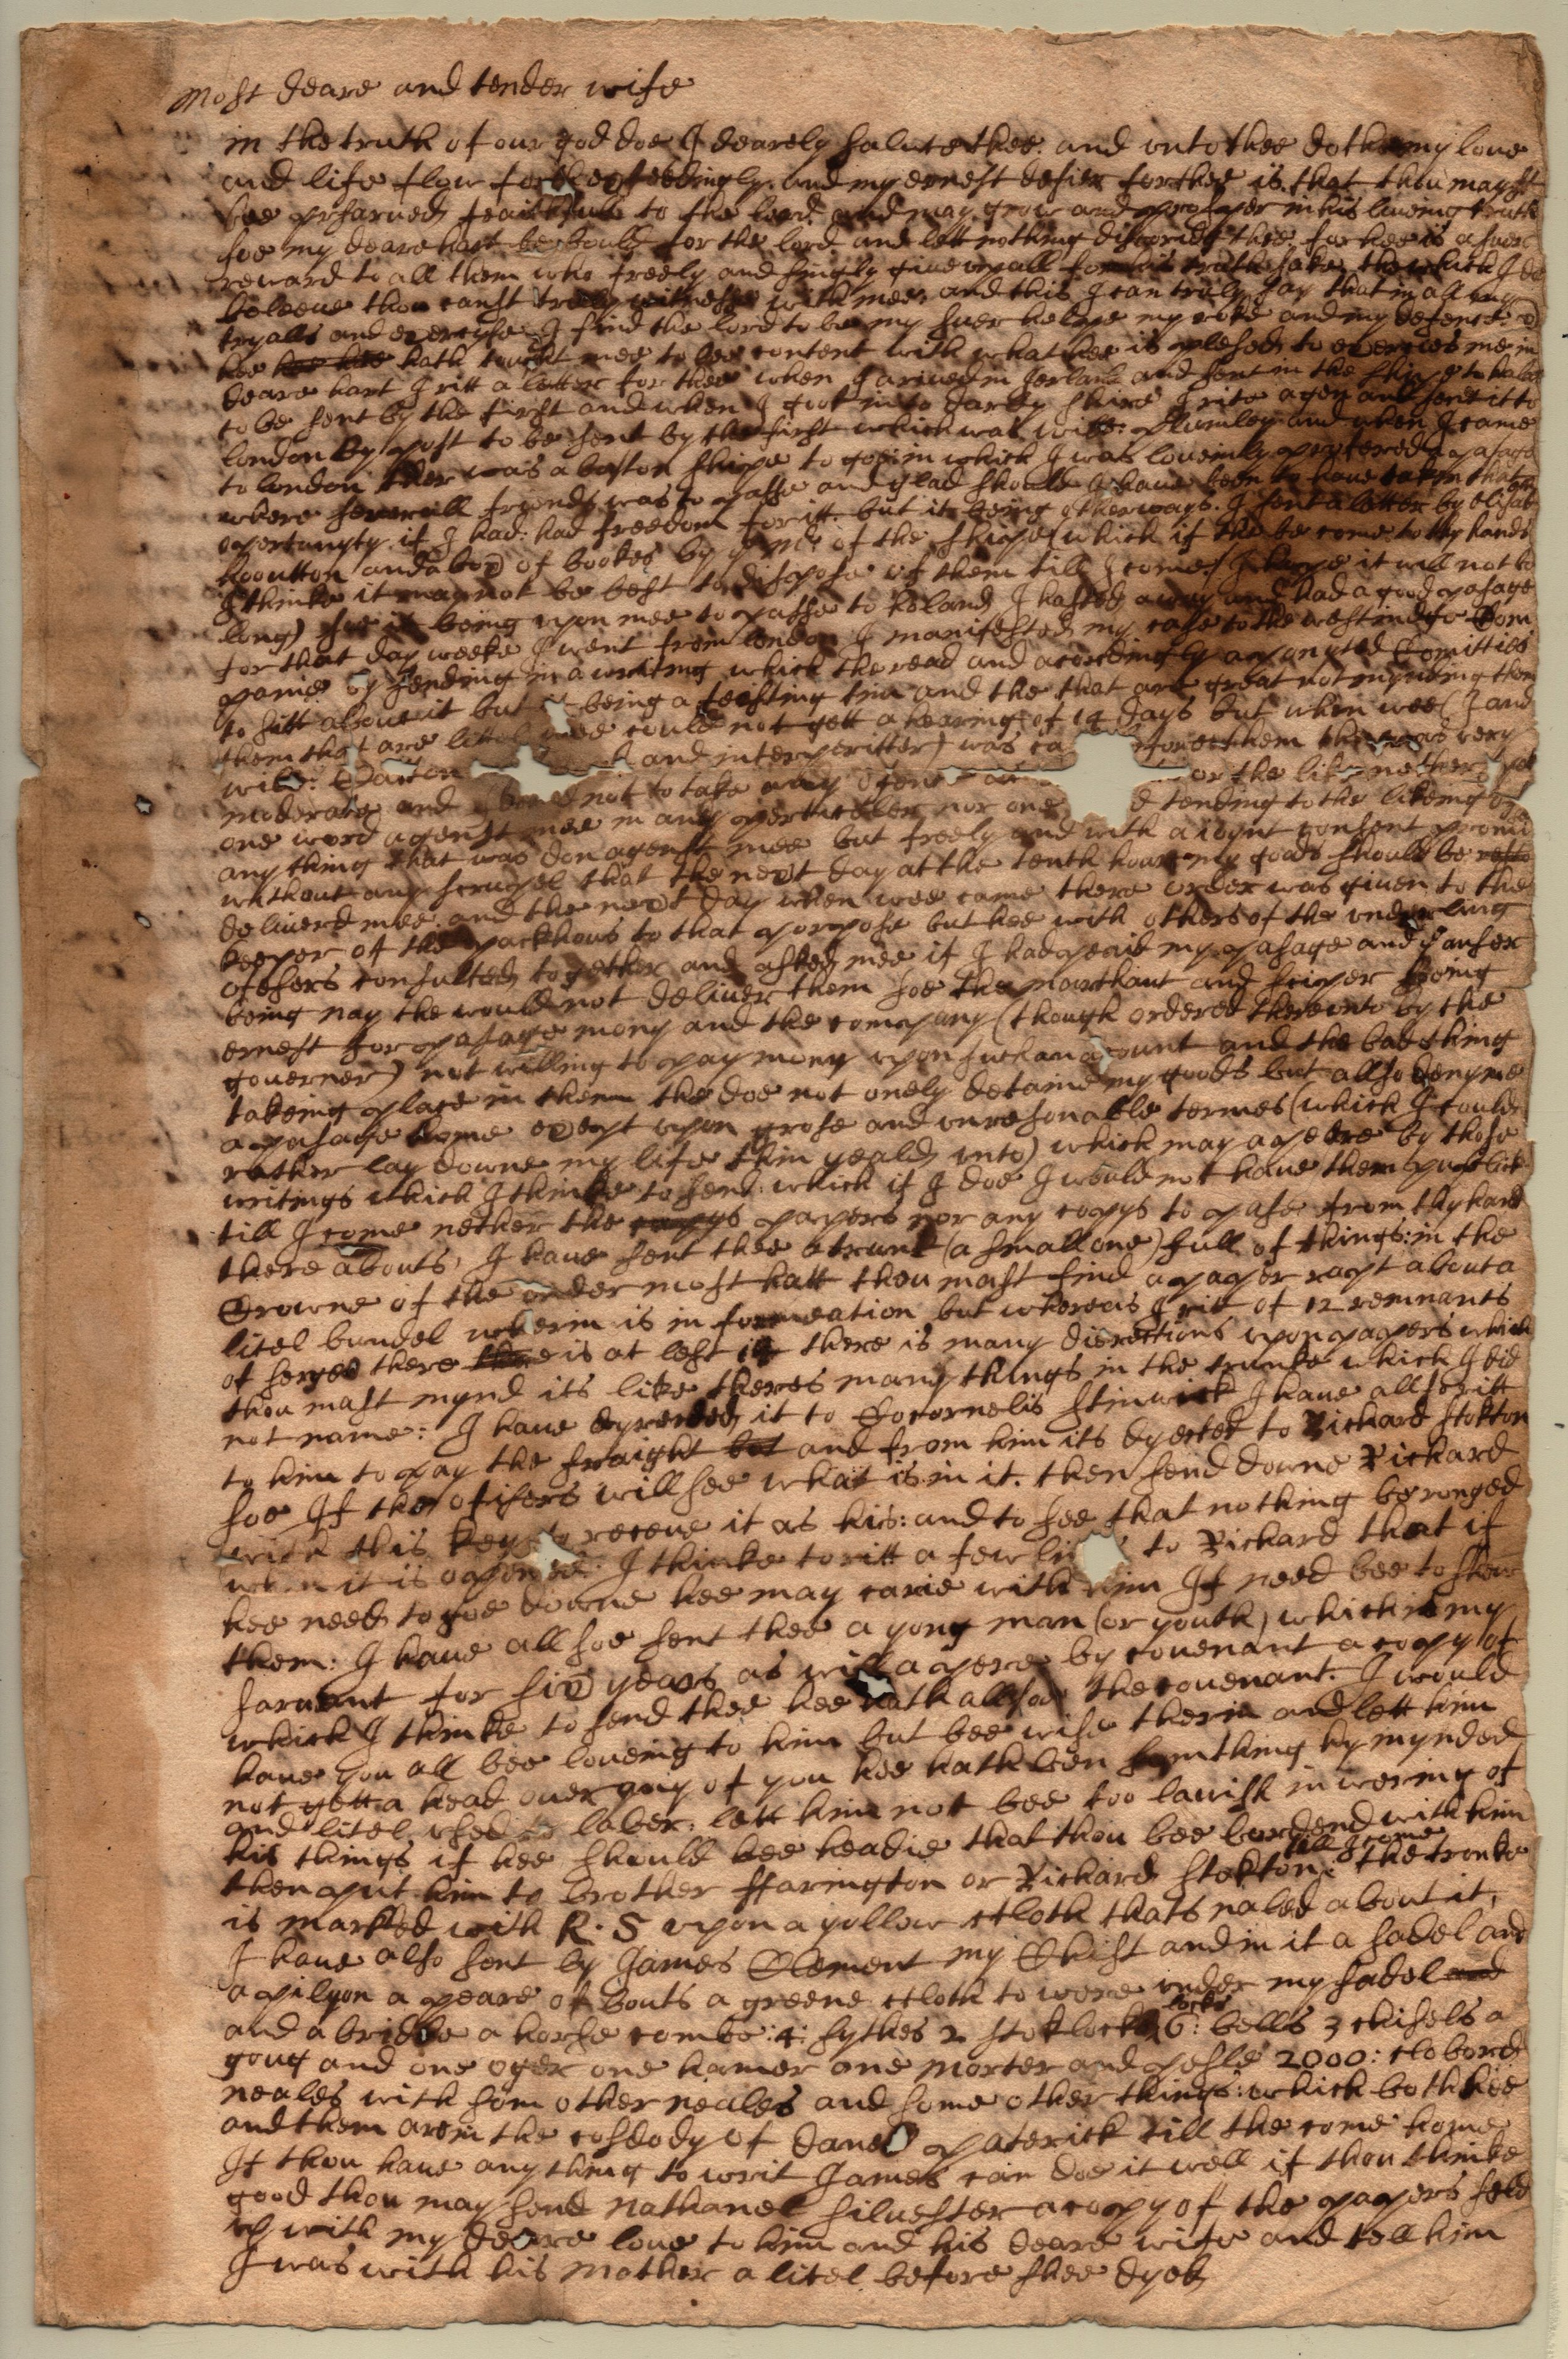 Most deare and tender wife
in the truth of our god doe I dearely salute thee and vnto thee doth my loue
and life flow and my ernest desier for thee is that thou mayst
bee prsarued faithfull to the lord and may grow and prosper in his liuing truth
soe my deare hart be bould for the lord and lett nothing thee for hee is a suer
reward to all them who freely and singly giue vp all for his truth sake the which I doe
beleeue thou canst truly witnesse with mee and this I can truly say that in all my
tryalls and exercise I find the lord to be my suer helpe my roke and my defence &
hee hath taught mee to bee content with what hee is plesed to exercies me in
deare hart I ritt a letter for thee when I ariued in Ierland and sent in the shipe to
to be sent by the first and when I gott into darby shire I rite agen and sent it to
london by post to be sent by the first which was will: plumley and when I came
to london ther was a boston shipe to goe in which I was loueinly profered a pasage
where seuerall frends was to passe and glad should I haue been to haue taken that
opertunyty if I had had freedom for itt but it being otherways I sent a letter by elisab
hooutton and a box of bookes by of the shipe which if the be come to thy hands
I thinke it may not be best to dispose of them till I come (I hope it will not be
long) soe it being vpon mee to passe to holand I hasted away and had a good pasage
for that day weeke I went from london I manifested my case to the westindie Com
panie by sending in a writing which the read and acordingly apoynted Comitties
to sitt aboue it but it being a feasting time and the that are great not mynding them
them that are littel wee could not gett a hearing of 14 days but when wee (I and
will: Caiton and interperitter) was before them the was very
moderate and not to take any or the like nether
one word agenst mee in any pertickler nor one tending to the likeing of
any thing that was don agenst mee but freely and with a ioynt consent promis
without any scrupel that the next day at the tenth houre my goods should be
deliuerd mee and the next day when wee came there order was giuen to the
keeper of the packhous to that porpose but hee with others of the vnderling
ofesers consulted together and asked mee if I had paid my pasage and answer
being nay the would not deliuer them soe the marthant and sciper being
ernest for pasage mony and the company (though ordered therevnto by the
gouerner) not willing to pay mony vpon such an acount and the bad thing
takeing place in them the doe not onely detaine my goods but allso deny me
a pasage home exept vpon grose and vnresonable termes (which I could
rather lay downe my life then yeald vnto) which may apeere by those
writings which I thinke to send: which if I doe I would not haue them publick
till I come nether the papers nor any copys to pase from thy hand
there abouts, I haue sent thee a trunk (a small one) full of things: in the
Crowne of the vnder most hatt thou mast find a paper rapt about a
litel bundel wherin is in formeation but whereas I ritt of 12 remnants
of serges there is at lest 14 there is many dierettions vpon papers which
thou mast mynd its like theres many things in the trunke which I did
not name: I haue dyrected it to Cornelis Stinwick I haue allso ritt
to him to pay the fraight and from him its dyected to Richard Stokton
soe If the ofisers will see what is in it. then send downe Richard
with this key to receue it as his: and to see that nothing be ronged
when it is opened: I thinke to ritt a few lines to Richard that if
hee need to goe downe hee may carie with him If need bee to shew
them: I haue all soe sent thee a yong man (or youth) which is my
saruant for six years as will apere by couenant a copy of
which I thinke to send thee hee hath allsoe the couenant. I would
haue you all bee loueing to him but bee wise therin and lett him
not gett a head ouer any of you hee hath ben somthing hy mynded
and litel vsed to laber: lett him not bee too lauish in wering of
his things if hee should bee headie that thou bee burdend with him
then put him to brother ffarington or Richard Stokton till I come: the tronke
is marked with R. S vpon a yollow cloth thats naled about it,
I haue also sent by James Clement my Chist and in it a sadel and
a pilyon a peare of bouts a greene cloth to were vnder my sadel and
and a bridle a horse combe: 4: sythes 2 stoklocks locks 6: bells 3 chisels a
goug and one oger one hamer one morter and pesle 2000: clobord
neales with som other neales and some other things: which both hee
and them are in the cosdody of Daniel paterick till the come home
If thou haue any thing to writ James can doe it well if thou thinke
good thou may send Nathanel siluester a copy of the papers seled
vp with my deare loue to him and his deare wife and tell him
I was with his mother a litel before shee dyed